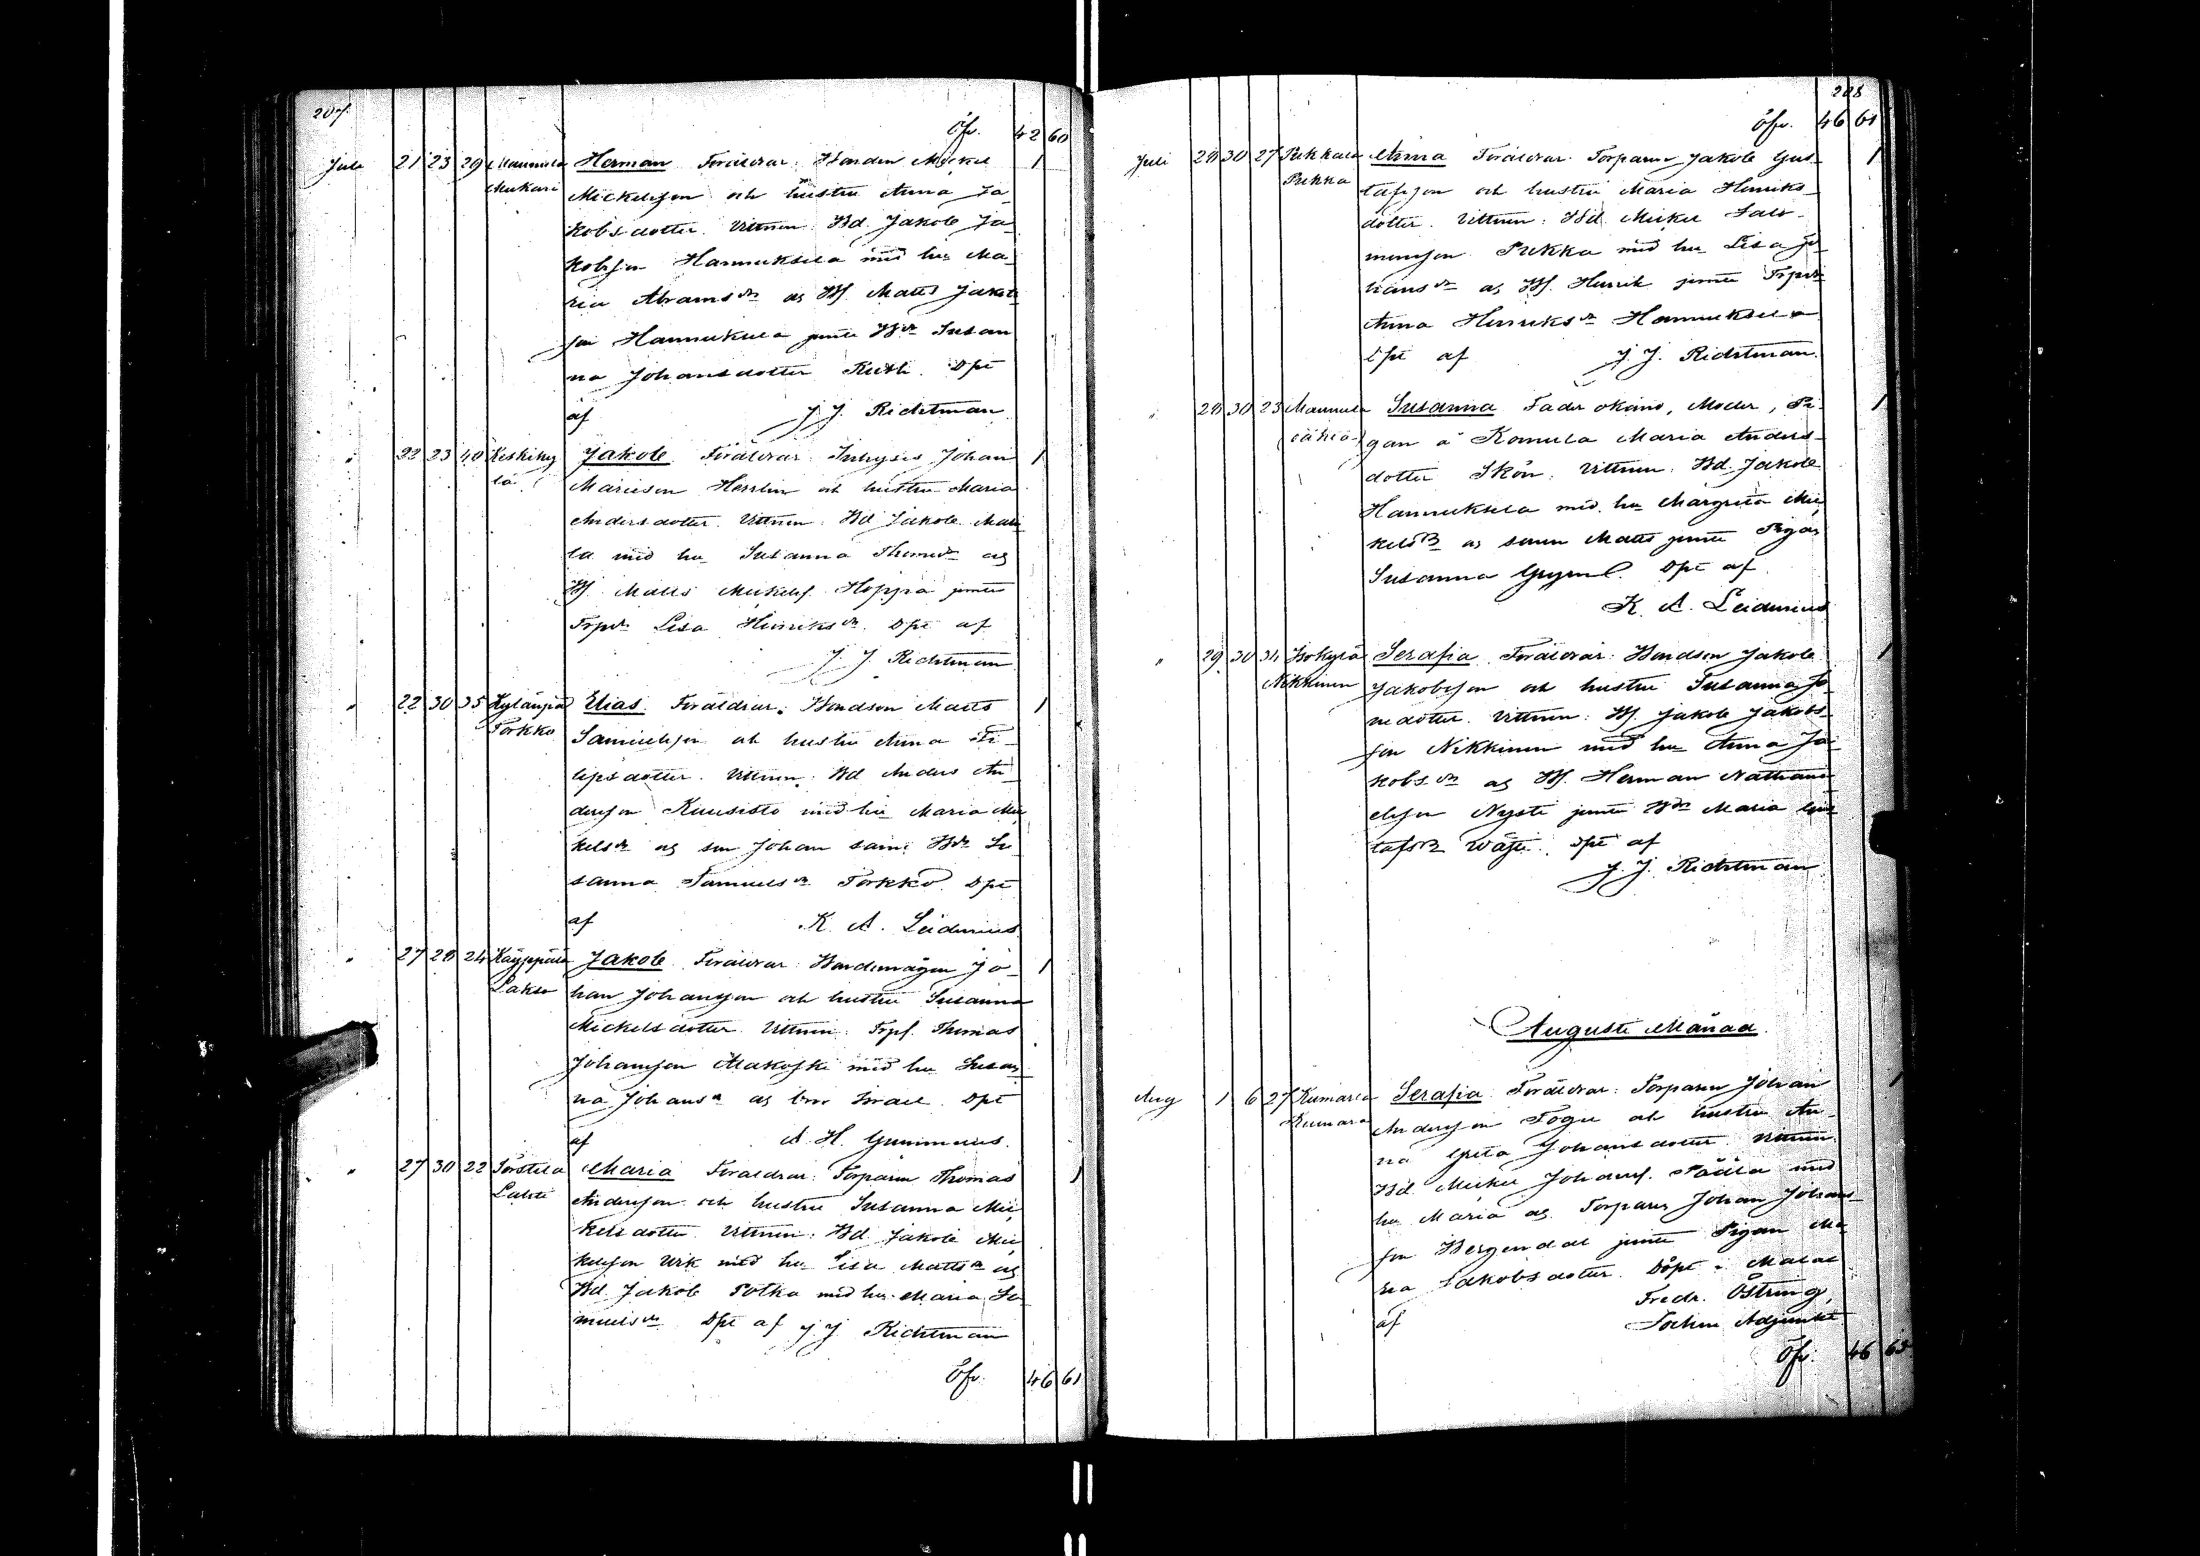 207.
Öfr. 42 60
Juli 21 23 29 Mannula Herman Föräldrar: Bonden Mickel 1
Mukari Mickelsson och hustru Anna Ja-
kobsdotter. Vittnen: Bd. Jakob Ja
kobsson Hannuksela med hu Ma
ria Abramsdr og Bs. Matts Jakobs
son Hannuksela jemte Bdr Susan
na Johansdotter Rusti. Dpt
af J. J. Richtman
" 22 23 40 Keskiky Jakob Föräldrar: Inhyses Johan 1
lä Mariesson och hustru Maria
Andersdotter. Vittnen: Bd Jakob
la med hu Susanna Thomsdr og
Bs. Matts Mickels. Hoppa jemte
Trpdr Lisa Henriksdr. Dpt af
J. J. Richtman
" 22 30 35 Kylänpää Elias. Föräldrar: Bondson Matts 1
Torkko Samuelsson och hustru Anna Fi-
lipsdotter. Vittnen: Bd Anders An
dersson Kuusisto med hu Maria Mic
kelsdr og son Johan samt Bdr Su
sanna Samuelsdr Torkko. Dpt
af K. A. Leidenius
" 27 29 24 Käyppälä Jakob Föräldrar: Bondemågen Jo- 1
Lakso han Johansson och hustru Susanna
Mickelsdotter. Vittnen: Trps. Thomas
Johansson Makoski med hu Susan
na Johansdr og bror Israel. Dpt
af A. H. Gummerus.
" 27 30 22 Torstila Maria Föräldrar: Torparen Thomas 1
Lahti Andersson och hustru Susanna Mic
kelsdotter. Vittnen: Bd. Jakob Mic
kelsson Urk med hu Lisa Mattsdr og
Bd. Jakob Potka med hu Maria Sa
muelsdr. Dpt af J. J. Richtman
Öfr. 46 61
208
Öfr. 46 61
Juli 28 30 27 Pukkala Anna Föräldrar: Torparen Jakob Gus- 1
Pukka tafsson och hustru Maria Henriks-
dotter. Vittnen: Bd. Mickel Salo-
monsson Pukka med hu Lisa Jo
hansdr og Bs. Henrik jemte Trpdr
Anna Henriksdr Hannuksela
Dpt af J. J. Richtman.
" 28 30 23 Mannula Susanna Fader okänd, Moder, Pi- 1
gan å Komula Maria Anders-
dotter Skön. Vittnen: Bd. Jakob
Hannuksela med hu Margreta Mic
kelsdr og sonen Matts jemte Pigan
Susanna Dpt af
K. A. Leidenius
" 29 30 34 Isokylä Serafia Föräldrar: Bondson Jakob 1
Nikkinen Jakobsson och hustru Susanna Jo
nedotter. Vittnen: Bs. Jakob Jakobs-
son Nikkinen med hu Anna Ja
kobsdr og Bs. Herman Nathana
elsson Nysti jemte Bdr Maria Gus
tafsdr Dpt af
J. J. Richtman
Augusti Månad.
Aug 1 6 27 Kumarla Serafia Föräldrar: Torparen Johan 1
Kumara Andersson och hustru An-
na Greta Johansdotter. Vittnen:
Bd. Mickel Johans. Päälä med
hu Maria og Torparen Johan Johans-
son Bergendal jemte Pigan Ma
ria Jakobsdotter. Döpt i Malaks
Fredr. Östring,
af Socken Adjunkt
Öfr. 46 65